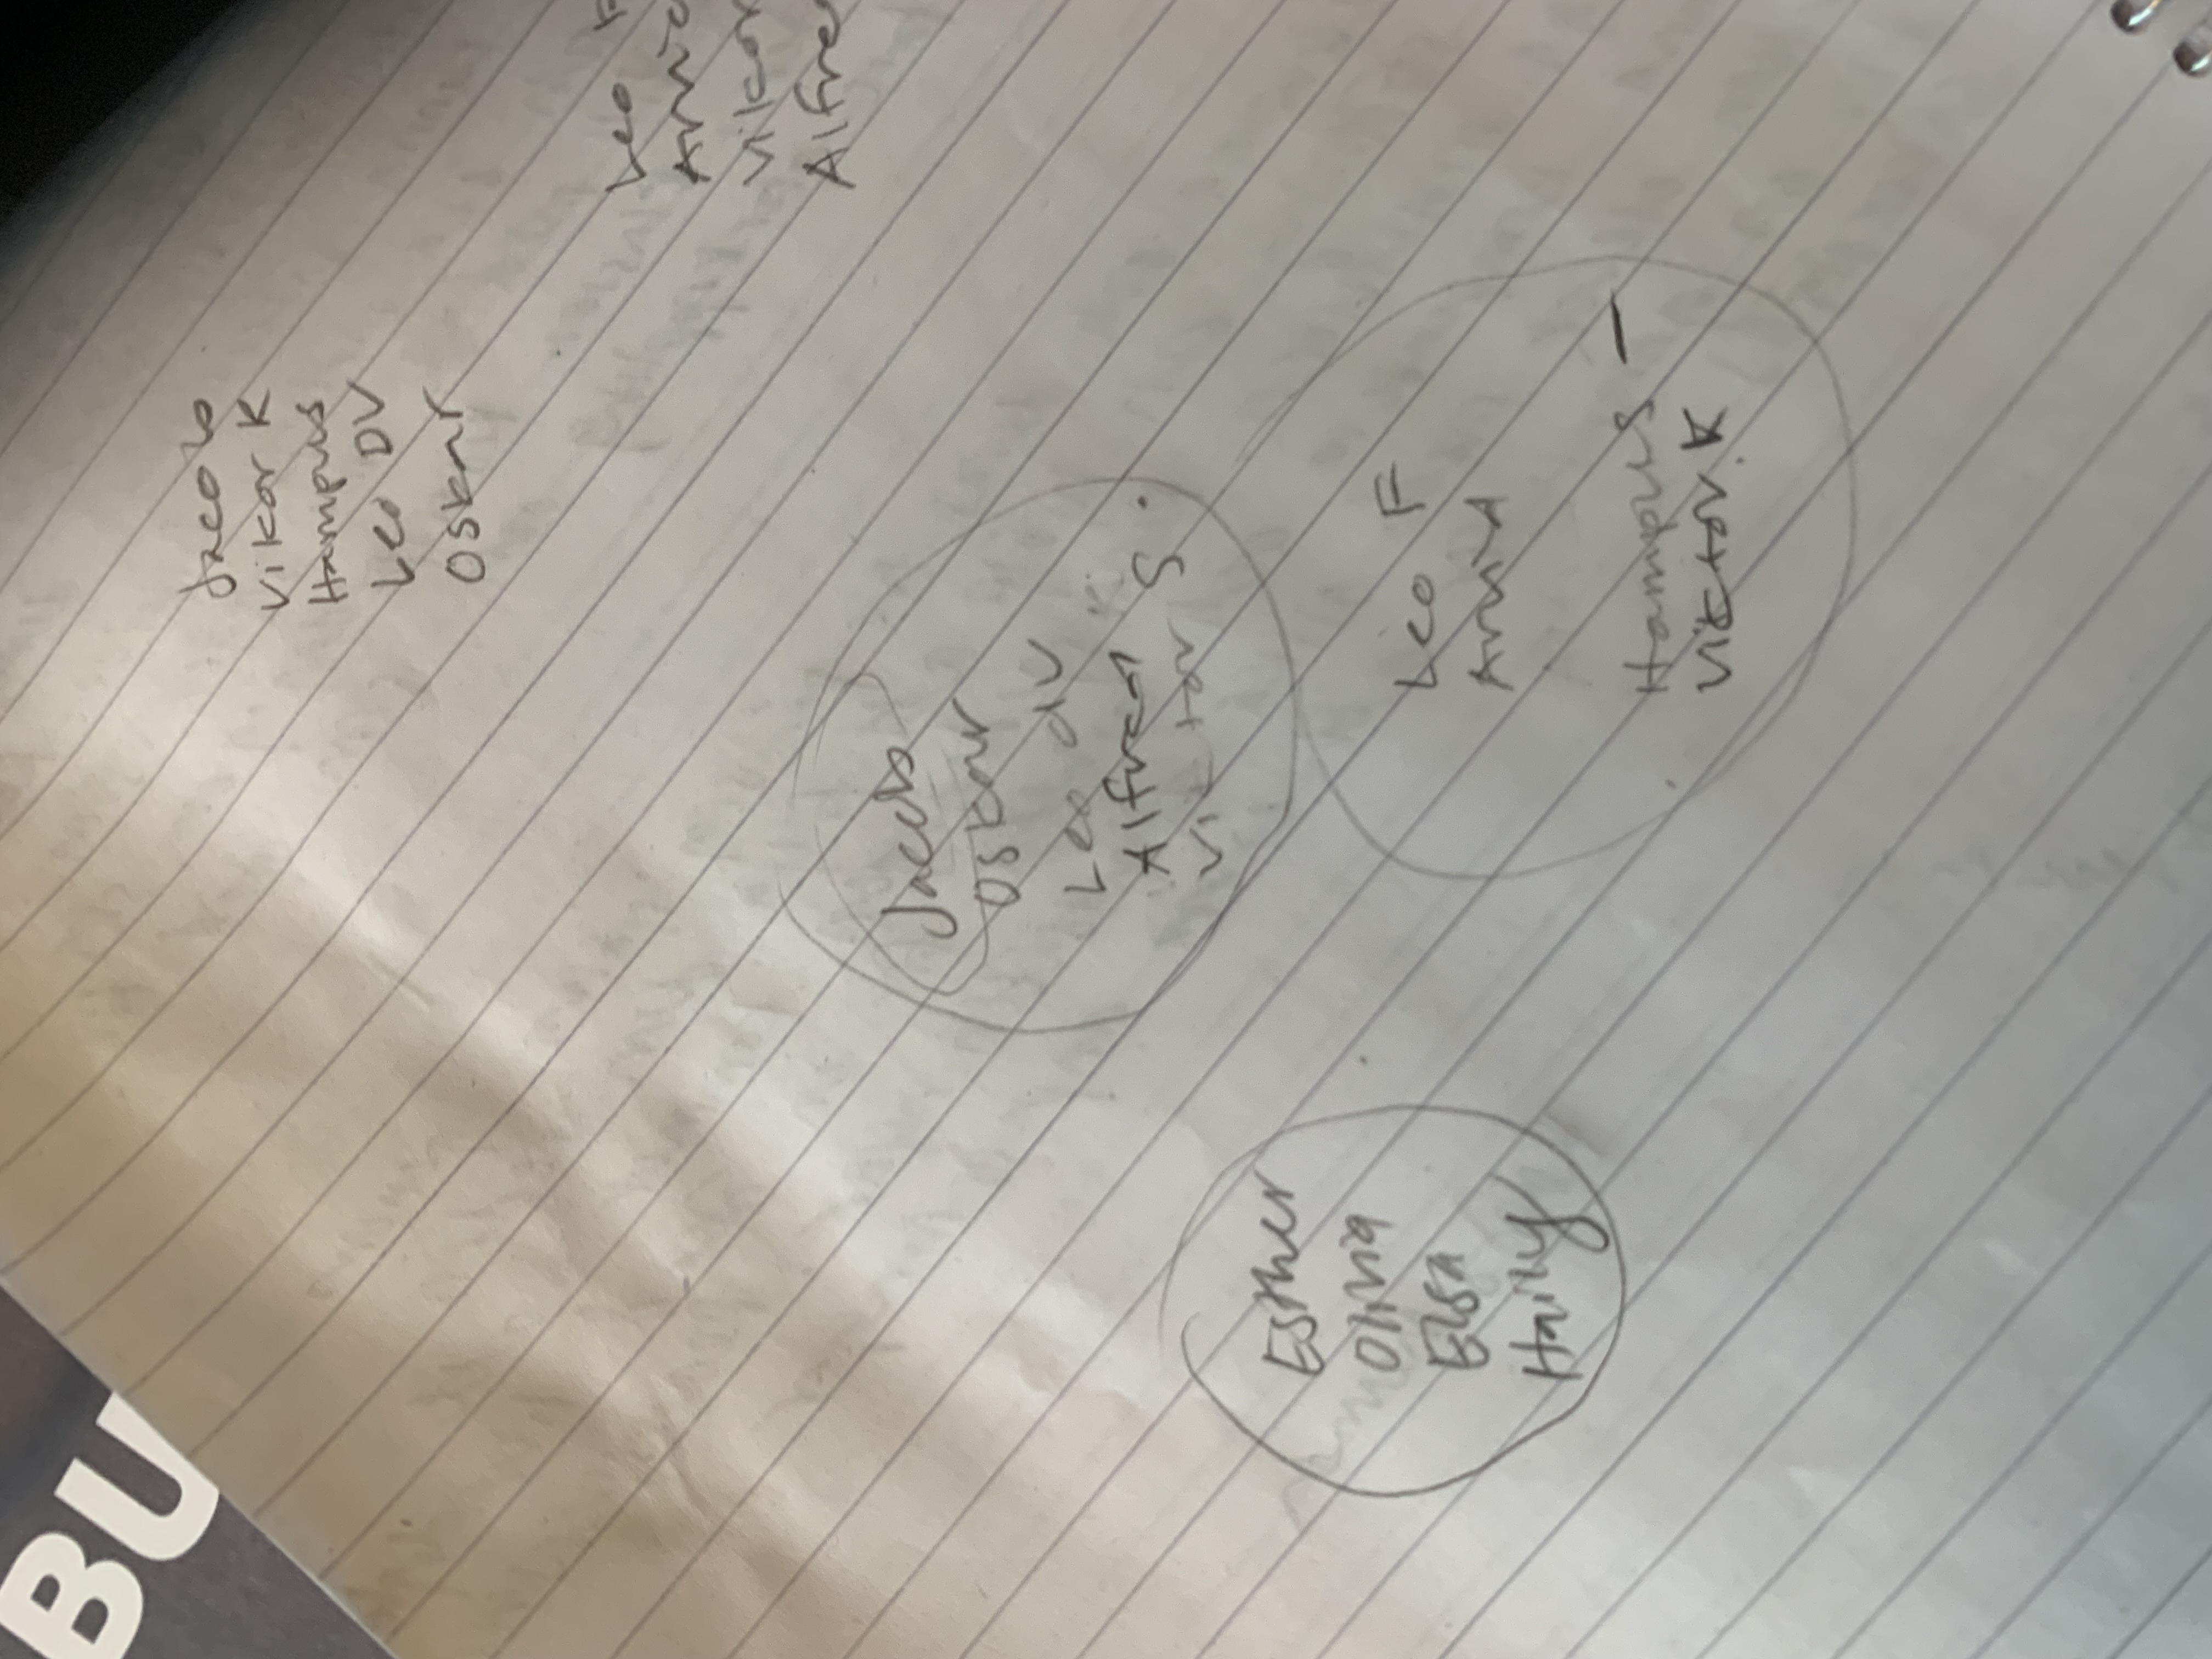 Jacob
Viktor K
Hampus
Leo DV
Oskar
Leo F
Arvid
Alfred
Jacob
Oskar
Leo DV
Alfred
Viktor S
Leo F
Arvid
Hampus
Viktor K
Esther
Olivia
Elsa
Harry
BU